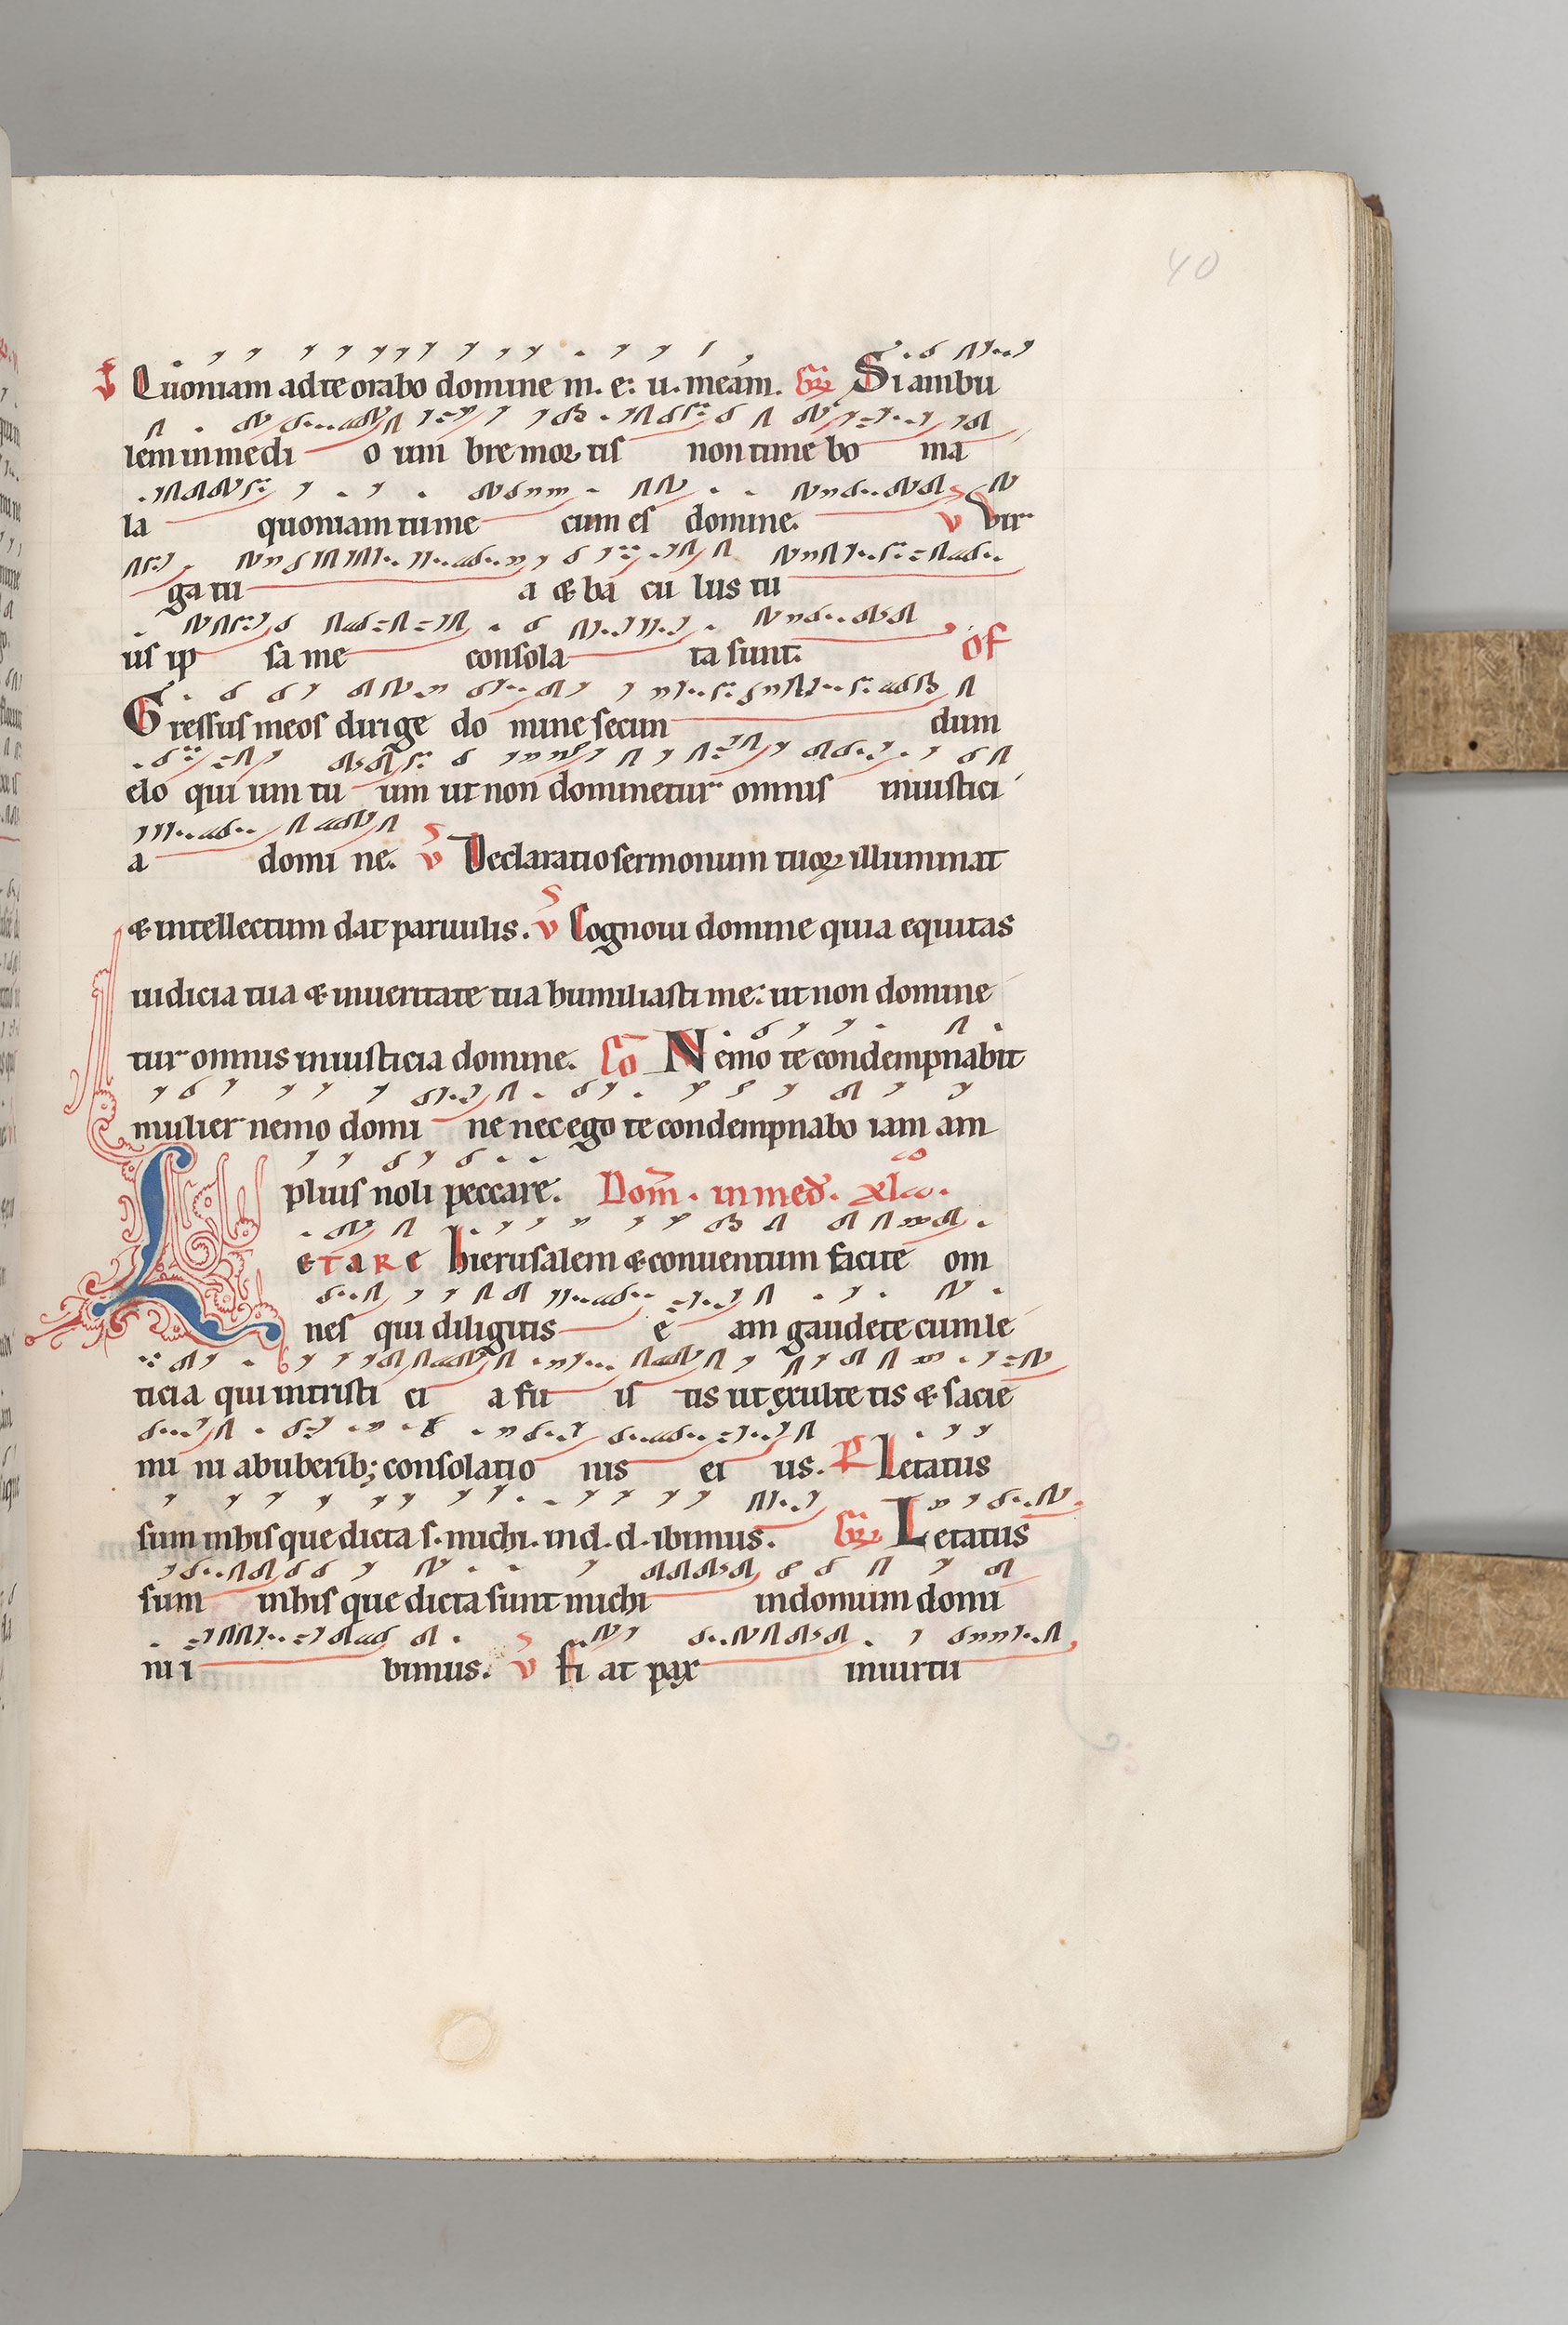 40
V Quoniam ad te orabo domine m. e. u. meam. Gr Si ambu
lem in medi o um bre mor tis non time bo ma
la quoniam tu me cum es domine. V Vir
ga tu a & ba cu lus tu
us ip sa me consola ta sunt. Of
Gressus meos dirige do mine secun dum
elo qui um tu um ut non dominetur omnis iniustici
a domi ne. V Declaratio sermonum tuoꝝ illuminat
& intellectum dat paruulis. V Cognoui domine quia equitas
iudicia tua & in ueritate tua humiliasti me: ut non domine
tur omnis iniusticia domine. Co Nemo te condempnabit
mulier nemo domi ne nec ego te condempnabo iam am
plius noli peccare. Dom. in med. xl.
LETARE hierusalem & conuentum facite om
nes qui diligitis e am gaudete cum le
ticia qui in tristi ci a fu is tis ut exulte tis & sacie
mi ni ab uberib; consolatio nis ei us. P Letatus
sum in his que dicta s. michi. in d. d. ibimus. Gr Letatus
sum in his que dicta sunt michi in domum domi
ni i bimus. V Fi at pax in uirtu